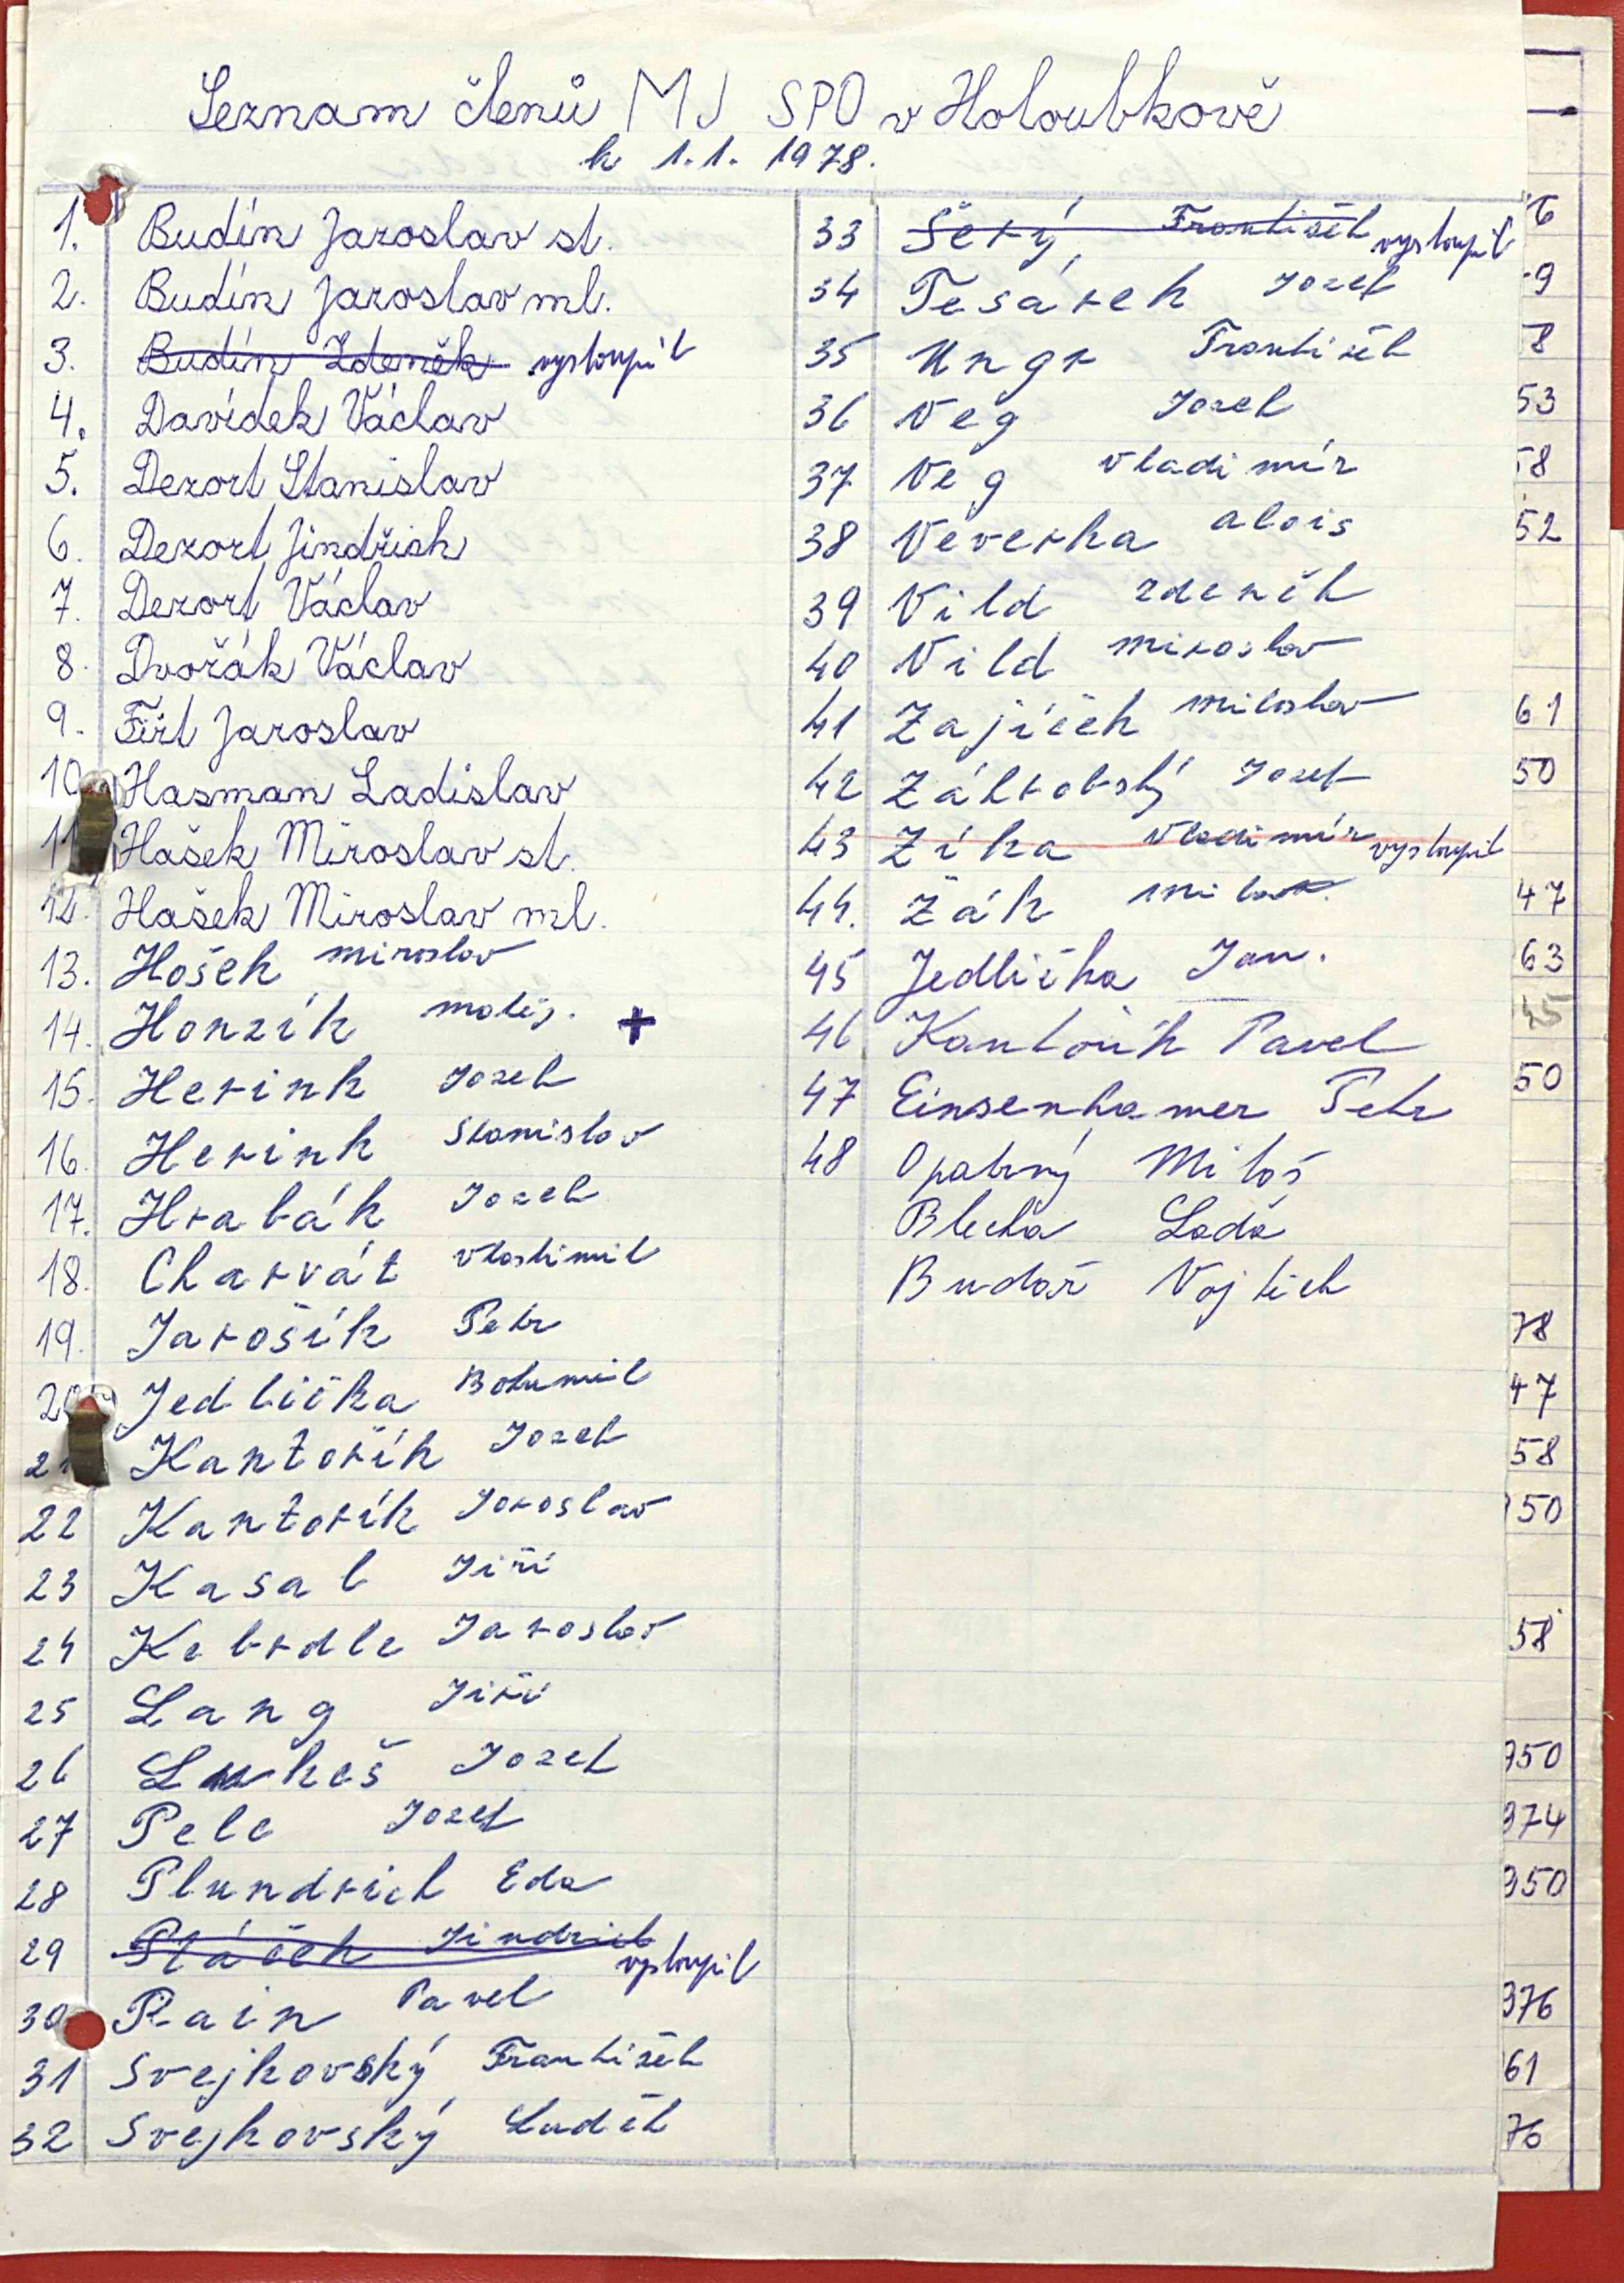 Seznam členů MJ SPO v Holoubkově
k 1.1. 1978.
1. Budín Jaroslav st.
2. Budín Jaroslav ml.
3. Budín Zdeněk vystoupil
4. Davídek Václav
5. Dezort Stanislav
6. Dezort Jindřich
7. Dezort Václav
8. Dvořák Václav
9. Fiřt Jaroslav
10. Hasman Ladislav
11. Hašek Miroslav st.
12. Hašek Miroslav ml.
13. Hošek Miroslav
14. Honzík Matěj. +
15. Herink Josef
16. Herink Stanislav
17. Hrabák Josef
18. Charvát Vlastimil
19. Jarošík Petr
20 Jedlička Bohumil
21 Kantořík Josef
22 Kantořík Jaroslav
23 Kasal Jiří
24 Kebrdle Jaroslav
25 Lang Jiří
26 Lukeš Josef
27 Pelc Josef
28 Plundrich Eda
29 Ptáček Jindrich vystoupil
30 Rain Pavel
31 Svejkovský František
32 Svejkovský Luděk
33 Šerý František vystoupil
34 Tesárek Josef
35 Ungr František
36 Veg Josef
37 Veg Vladimír
38 Veverka Alois
39 Vild Zdeněk
40 Vild Miroslav
41 Zajíček Miloslav
42 Zákrobský Josef
43 Zíka Vladimír vystoupil
44. Žák
45 Jedlička Jan.
46 Kantořík Pavel
47 Einsenhamer Petr
48 Opatrný Miloš
Blecha Lada
Budař Vojtěch
53
58
52
61
50
47
63
45
50
78
47
58
50
58
950
974
950
976
61
76